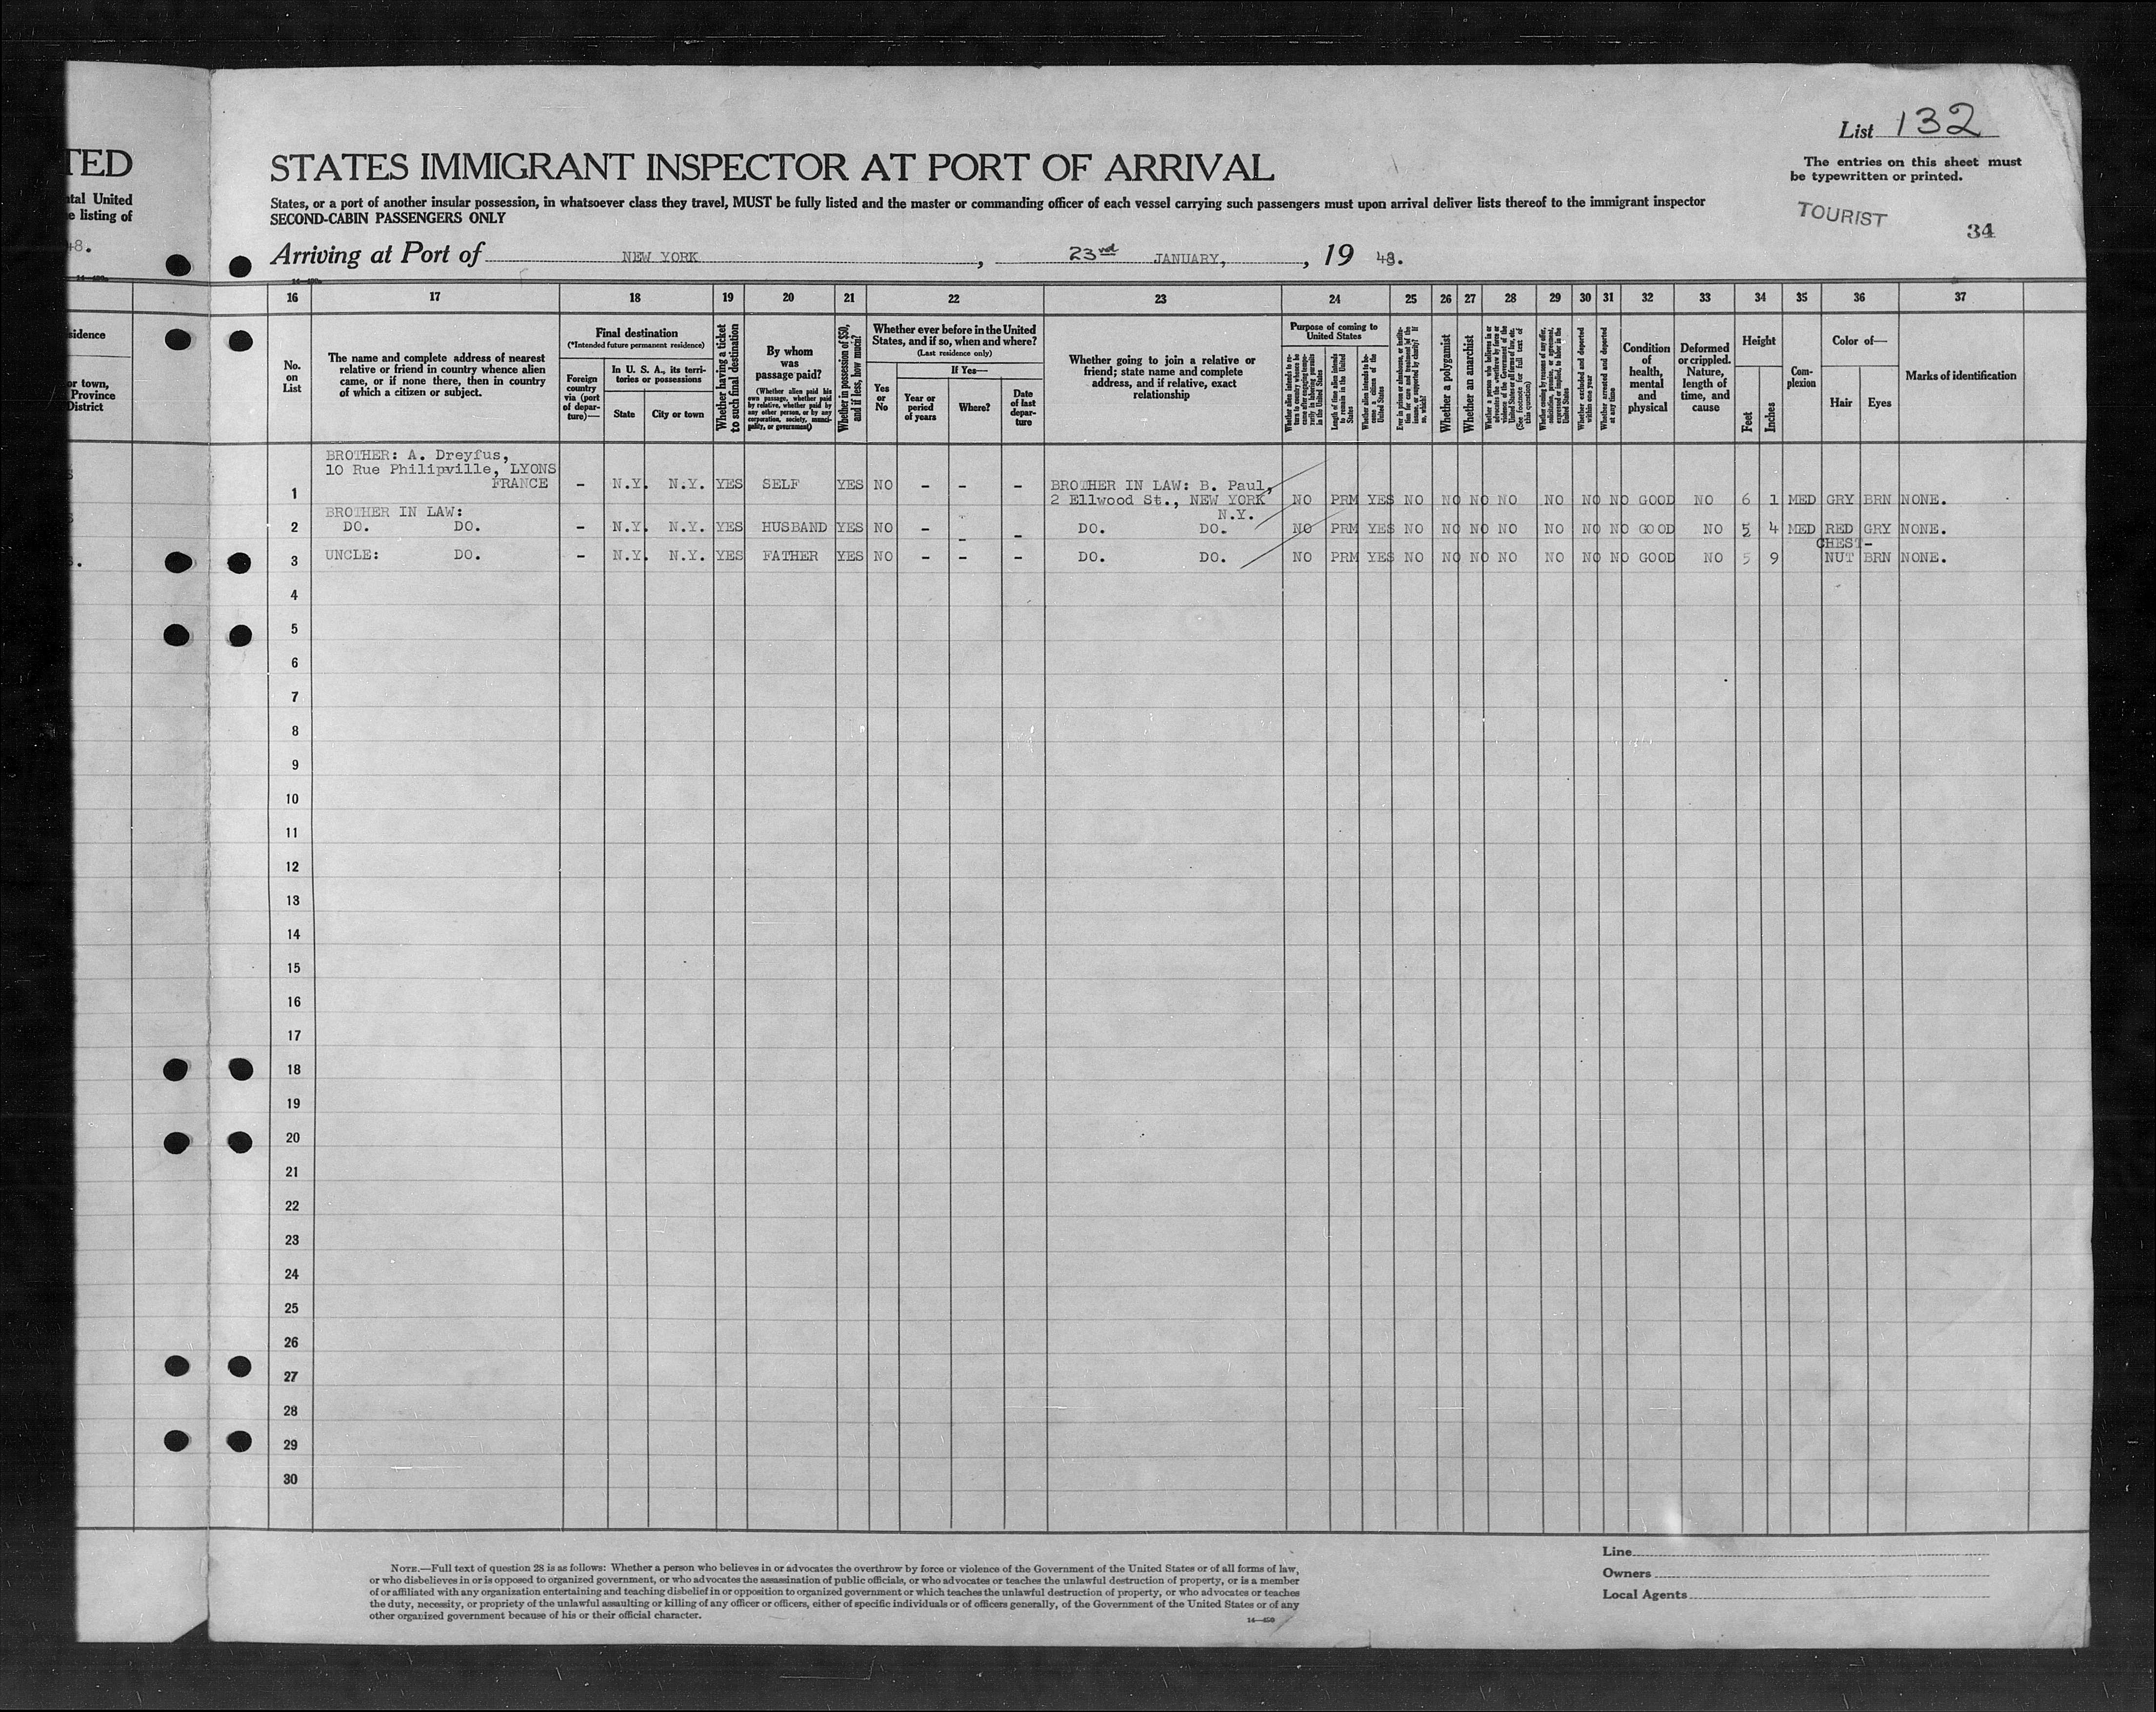 TED
tal United
e listing of
48.
sidence
or town,
Province
District
List 132
The entries on this sheet must
be typewritten or printed.
TOURIST
34
STATES IMMIGRANT INSPECTOR AT PORT OF ARRIVAL
States, or a port of another insular possession, in whatsoever class they travel, MUST be fully listed and the master or commanding officer of each vessel carrying such passengers must upon arrival deliver lists thereof to the immigrant inspector
SECOND-CABIN PASSENGERS ONLY
Arriving at Port of NEW YORK, 23rd JANUARY, , 19 48.
16 17 18 19 20 21 22 23 24 25 26 27 28 29 30 31 32 33 34 35 36 37
No.
on
List
The name and complete address of nearest
relative or friend in country whence alien
came, or if none there, then in country
of which a citizen or subject.
Final destination
(*Intended future permanent residence)
Foreign
country
via (port
of depar-
ture)—
In U. S. A., its terri-
tories or possessions
State
City or town
Whether having a ticket
to such final destination
By whom
was
passage paid?
(Whether alien paid his
own passage, whether paid
by relative, whether paid by
any other person, or by any
corporation, society, munici-
pality, or government)
Whether in possession of $50,
and if less, how much?
Whether ever before in the United
States, and if so, when and where?
(Last residence only)
Yes
or
No
If Yes—
Year or
period
of years
Where?
Date
of last
depar-
ture
Whether going to join a relative or
friend; state name and complete
address, and if relative, exact
relationship
Purpose of coming to
United States
Length of time alien intends
to remain in the United
States
Whether alien intends to be-
come a citizen of the
United States
Whether a polygamist
Whether an anarchist
Whether excluded and deported
within one year
Whether arrested and deported
at any time
Condition
of
health,
mental
and
physical
Deformed
or crippled.
Nature,
length of
time, and
cause
Height
Feet
Inches
Com-
plexion
Color of—
Hair
Eyes
Marks of identification
BROTHER: A. Dreyfus,
10 Rue Philipville, LYONS
FRANCE
1 - N.Y. N.Y. YES SELF YES NO - - - BROTHER IN LAW: B. Paul,
2 Ellwood St., NEW YORK
N.Y.
NO PRM YES NO NO NO NO NO NO NO GOOD NO 6 1 MED GRY BRN NONE.
BROTHER IN LAW:
2 DO. DO. - N.Y. N.Y. YES HUSBAND YES NO - - - DO. DO. NO PRM YES NO NO NO NO NO NO NO GOOD NO 5 4 MED RED GRY NONE.
3 UNCLE: DO. - N.Y. N.Y. YES FATHER YES NO - - - DO. DO. NO PRM YES NO NO NO NO NO NO NO GOOD NO 5 9 CHEST-
NUT BRN NONE.
4
5
6
7
8
9
10
11
12
13
14
15
16
17
18
19
20
21
22
23
24
25
26
27
28
29
30
NOTE.—Full text of question 28 is as follows: Whether a person who believes in or advocates the overthrow by force or violence of the Government of the United States or of all forms of law,
or who disbelieves in or is opposed to organized government, or who advocates the assassination of public officials, or who advocates or teaches the unlawful destruction of property, or is a member
of or affiliated with any organization entertaining and teaching disbelief in or opposition to organized government or which teaches the unlawful destruction of property, or who advocates or teaches
the duty, necessity, or propriety of the unlawful assaulting or killing of any officer or officers, either of specific individuals or of officers generally, of the Government of the United States or of any
other organized government because of his or their official character.
14—450
Line
Owners
Local Agents